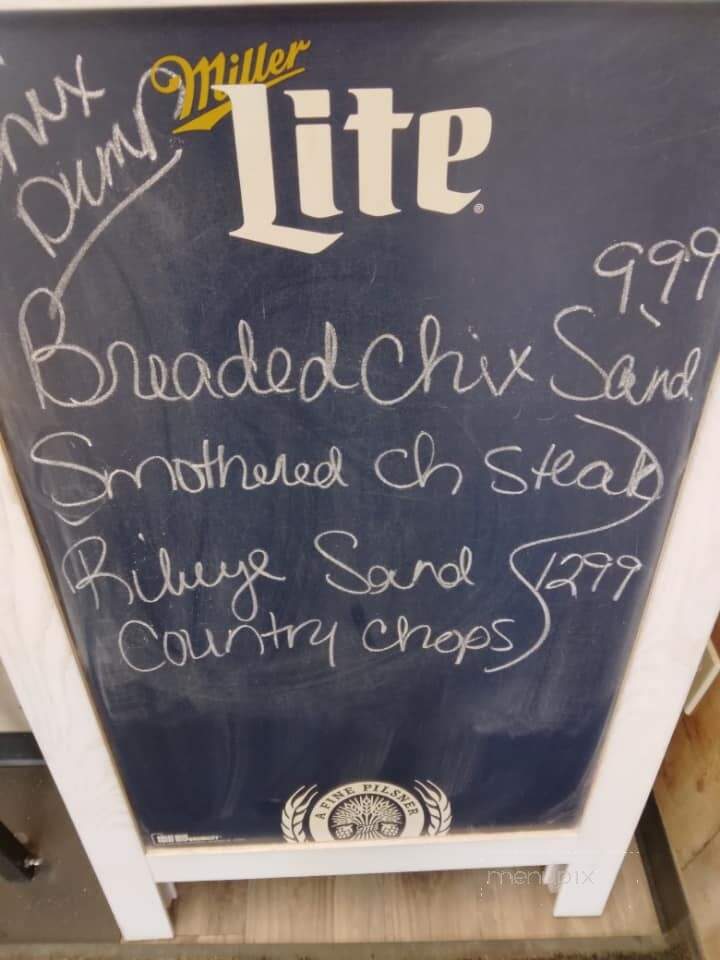 Miller
Lite
Dump
9.99
Breaded Chix Sand
Smothered Ch Steak
Ribeye Sand 1299
Country Chops
A FINE PILSNER
menupix